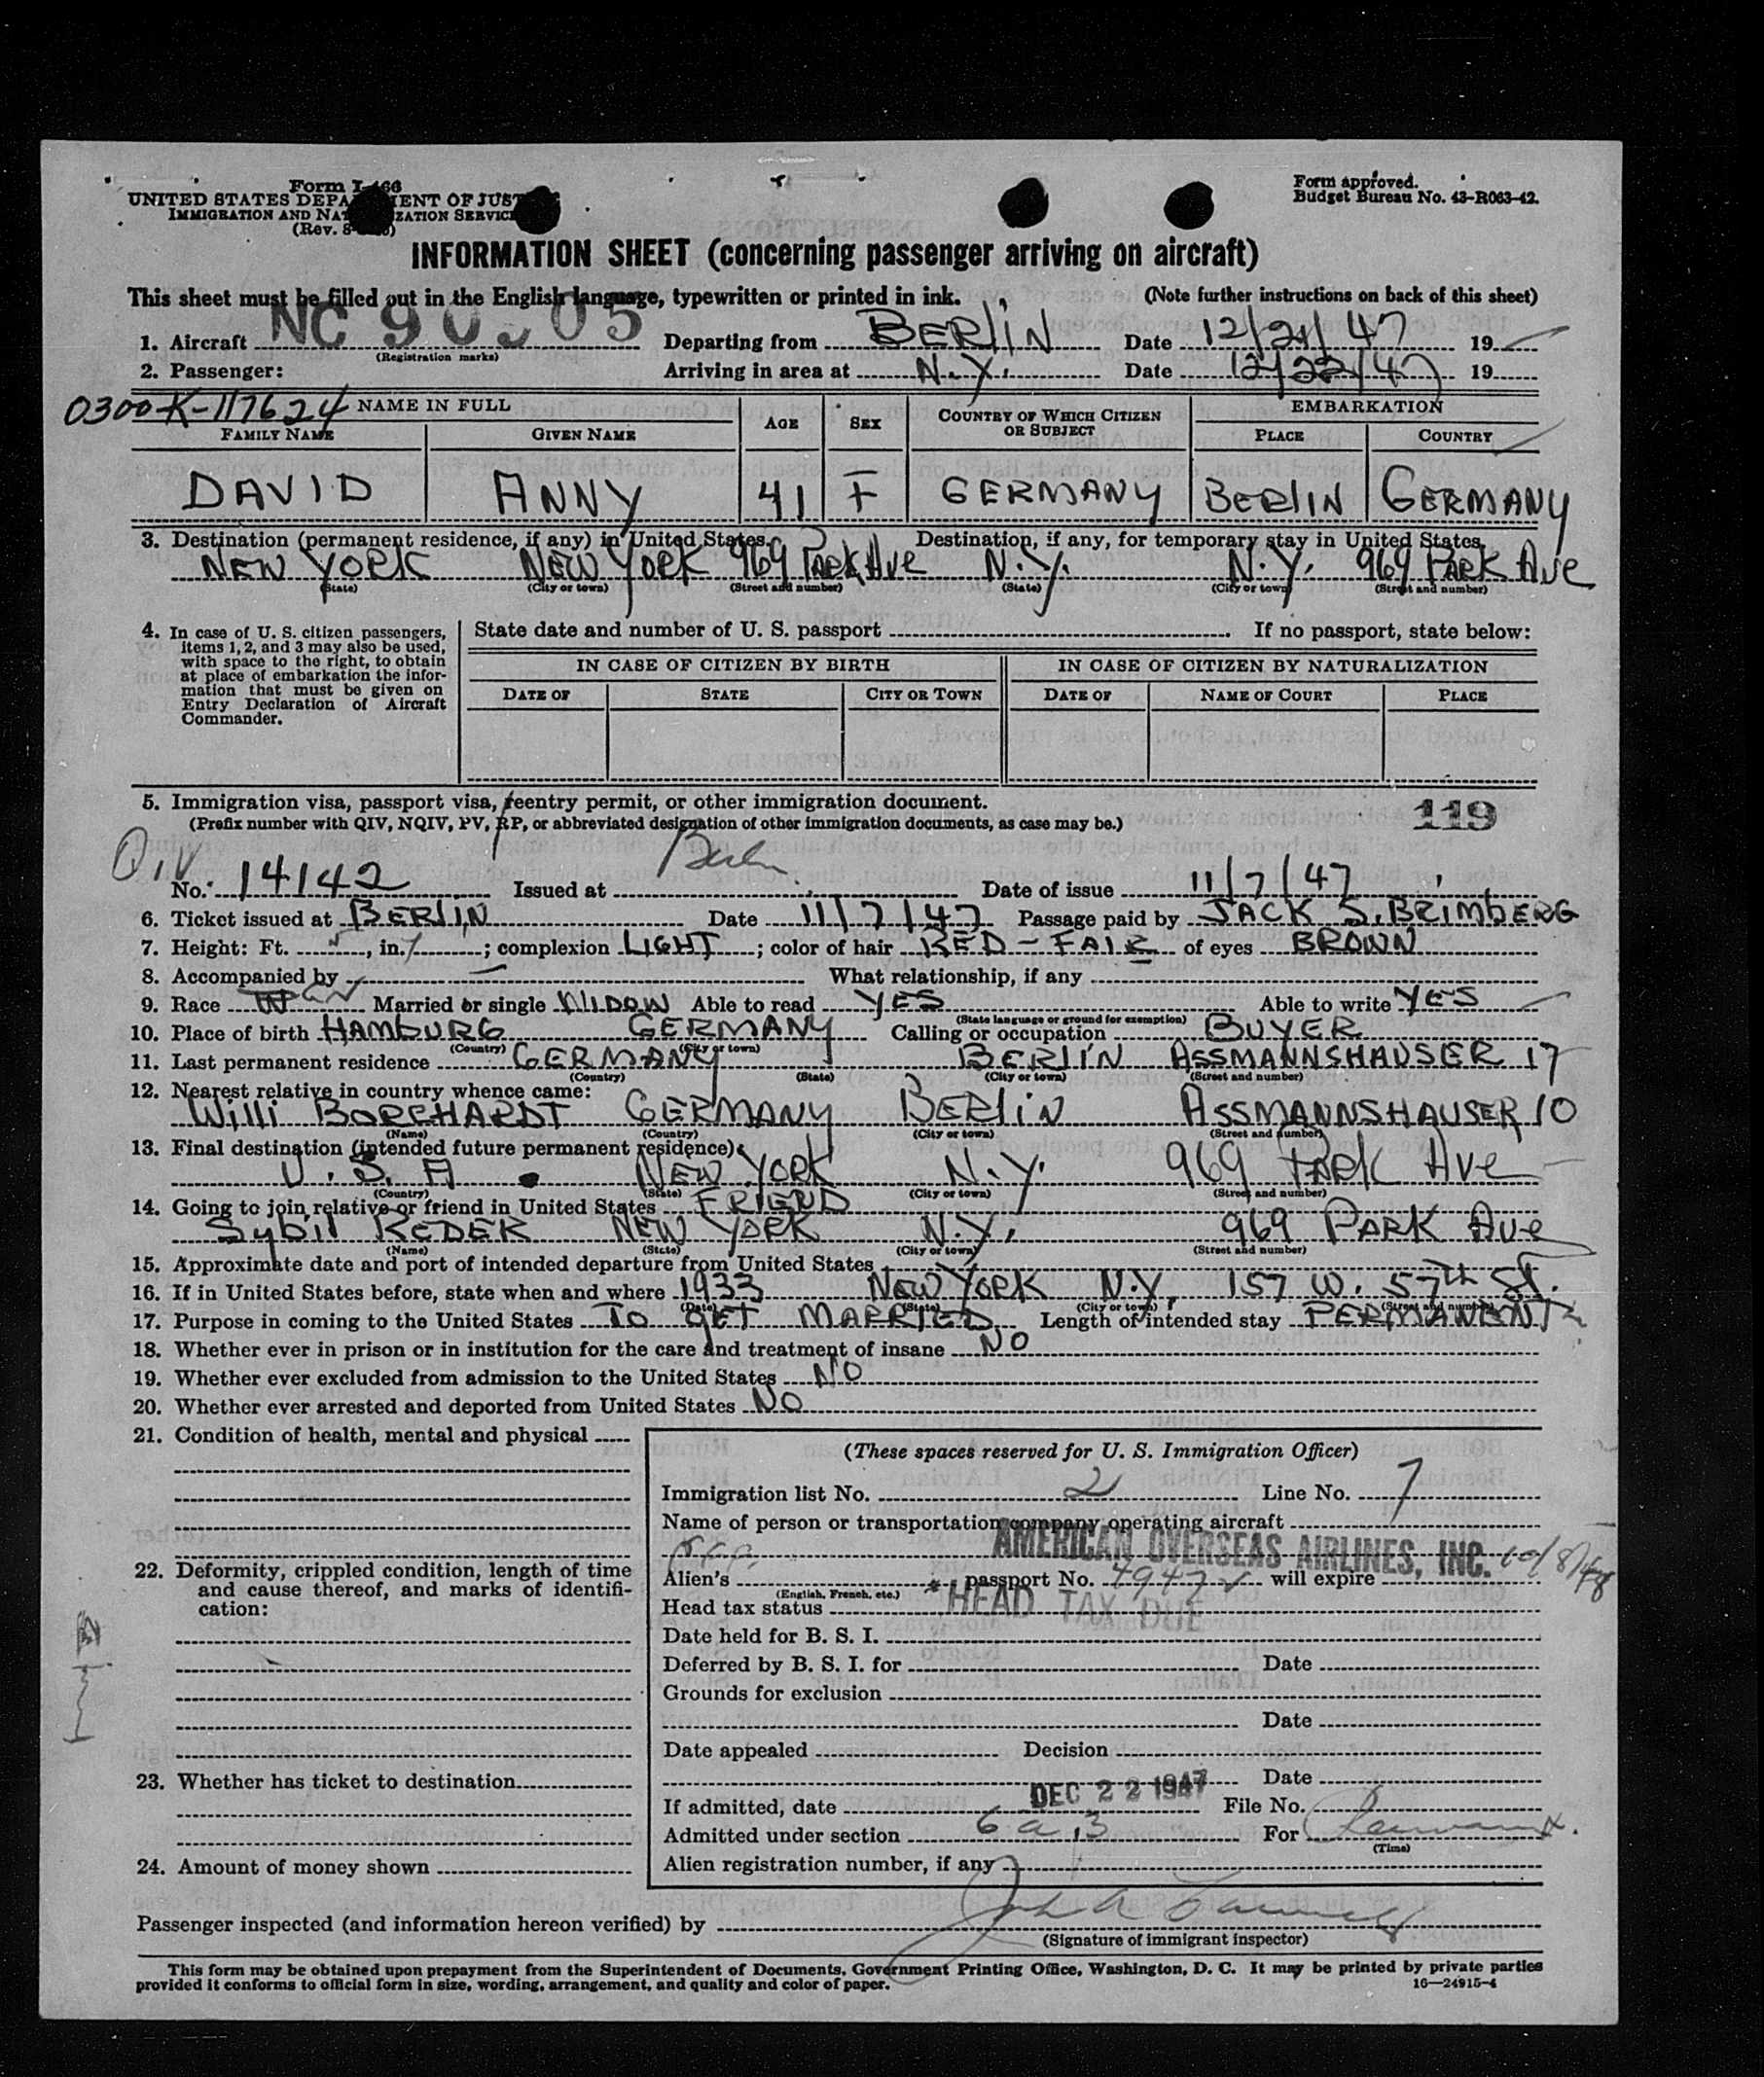 Form I-466
UNITED STATES DEPARTMENT OF JUSTICE
IMMIGRATION AND NATURALIZATION SERVICE
(Rev. 8-
Form approved.
Budget Bureau No. 43-R063-42.
INFORMATION SHEET (concerning passenger arriving on aircraft)
This sheet must be filled out in the English language, typewritten or printed in ink. (Note further instructions on back of this sheet)
1. Aircraft NC 90 05 Departing from BERLIN Date 12/21/47 19
(Registration marks)
2. Passenger: Arriving in area at N.Y. Date 12/22/47 19
0300-K-117624 NAME IN FULL AGE SEX COUNTRY OF WHICH CITIZEN OR SUBJECT EMBARKATION
FAMILY NAME GIVEN NAME PLACE COUNTRY
DAVID ANNY 41 F GERMANY BERLIN GERMANY
3. Destination (permanent residence, if any) in United States. Destination, if any, for temporary stay in United States.
NEW YORK NEW YORK 969 PARK AVE N.Y. N.Y. 969 PARK AVE
(State) (City or town) (Street and number) (State) (City or town) (Street and number)
4. In case of U. S. citizen passengers,
items 1, 2, and 3 may also be used,
with space to the right, to obtain
at place of embarkation the infor-
mation that must be given on
Entry Declaration of Aircraft
Commander.
State date and number of U. S. passport If no passport, state below:
IN CASE OF CITIZEN BY BIRTH IN CASE OF CITIZEN BY NATURALIZATION
DATE OF STATE CITY OR TOWN DATE OF NAME OF COURT PLACE
5. Immigration visa, passport visa, reentry permit, or other immigration document. 119
(Prefix number with QIV, NQIV, PV, RP, or abbreviated designation of other immigration documents, as case may be.)
QIV No. 14142 Issued at Berlin Date of issue 11/7/47
6. Ticket issued at BERLIN Date 11/7/47 Passage paid by JACK S. BRIMBERG
7. Height: Ft. 5, in. ; complexion LIGHT; color of hair RED-FAIR of eyes BROWN
8. Accompanied by What relationship, if any
9. Race Married or single WIDOW Able to read YES Able to write YES
(State language or ground for exemption)
10. Place of birth HAMBURG GERMANY Calling or occupation BUYER
(Country) (City or town)
11. Last permanent residence GERMANY BERLIN ASSMANNSHAUSER 17
(Country) (State) (City or town) (Street and number)
12. Nearest relative in country whence came:
Willi BORCHARDT GERMANY BERLIN ASSMANNSHAUSER 10
(Name) (Country) (City or town) (Street and number)
13. Final destination (intended future permanent residence)
U.S.A. NEW YORK N.Y. 969 PARK AVE
(Country) (State) (City or town) (Street and number)
14. Going to join relative or friend in United States FRIEND
Sybil REDER NEW YORK N.Y. 969 PARK AVE
(Name) (State) (City or town) (Street and number)
15. Approximate date and port of intended departure from United States
16. If in United States before, state when and where 1933 NEW YORK N.Y. 157 W. 57th St.
(Date) (State) (City or town) (Street and number)
17. Purpose in coming to the United States TO GET MARRIED Length of intended stay PERMANENT
18. Whether ever in prison or in institution for the care and treatment of insane NO
19. Whether ever excluded from admission to the United States NO
20. Whether ever arrested and deported from United States NO
21. Condition of health, mental and physical
22. Deformity, crippled condition, length of time
and cause thereof, and marks of identifi-
cation:
23. Whether has ticket to destination
24. Amount of money shown
(These spaces reserved for U. S. Immigration Officer)
Immigration list No. 2 Line No. 7
Name of person or transportation company operating aircraft
AMERICAN OVERSEAS AIRLINES, INC.
Alien's passport No. 4947 will expire 10/8/48
(English, French, etc.)
Head tax status * HEAD TAX DUE
Date held for B. S. I.
Deferred by B. S. I. for Date
Grounds for exclusion
Date
Date appealed Decision
Date
If admitted, date DEC 22 1947 File No.
Admitted under section 6 a 3 For Permanent
(Time)
Alien registration number, if any
Passenger inspected (and information hereon verified) by
(Signature of immigrant inspector)
This form may be obtained upon prepayment from the Superintendent of Documents, Government Printing Office, Washington, D. C. It may be printed by private parties
provided it conforms to official form in size, wording, arrangement, and quality and color of paper. 16—24915-4